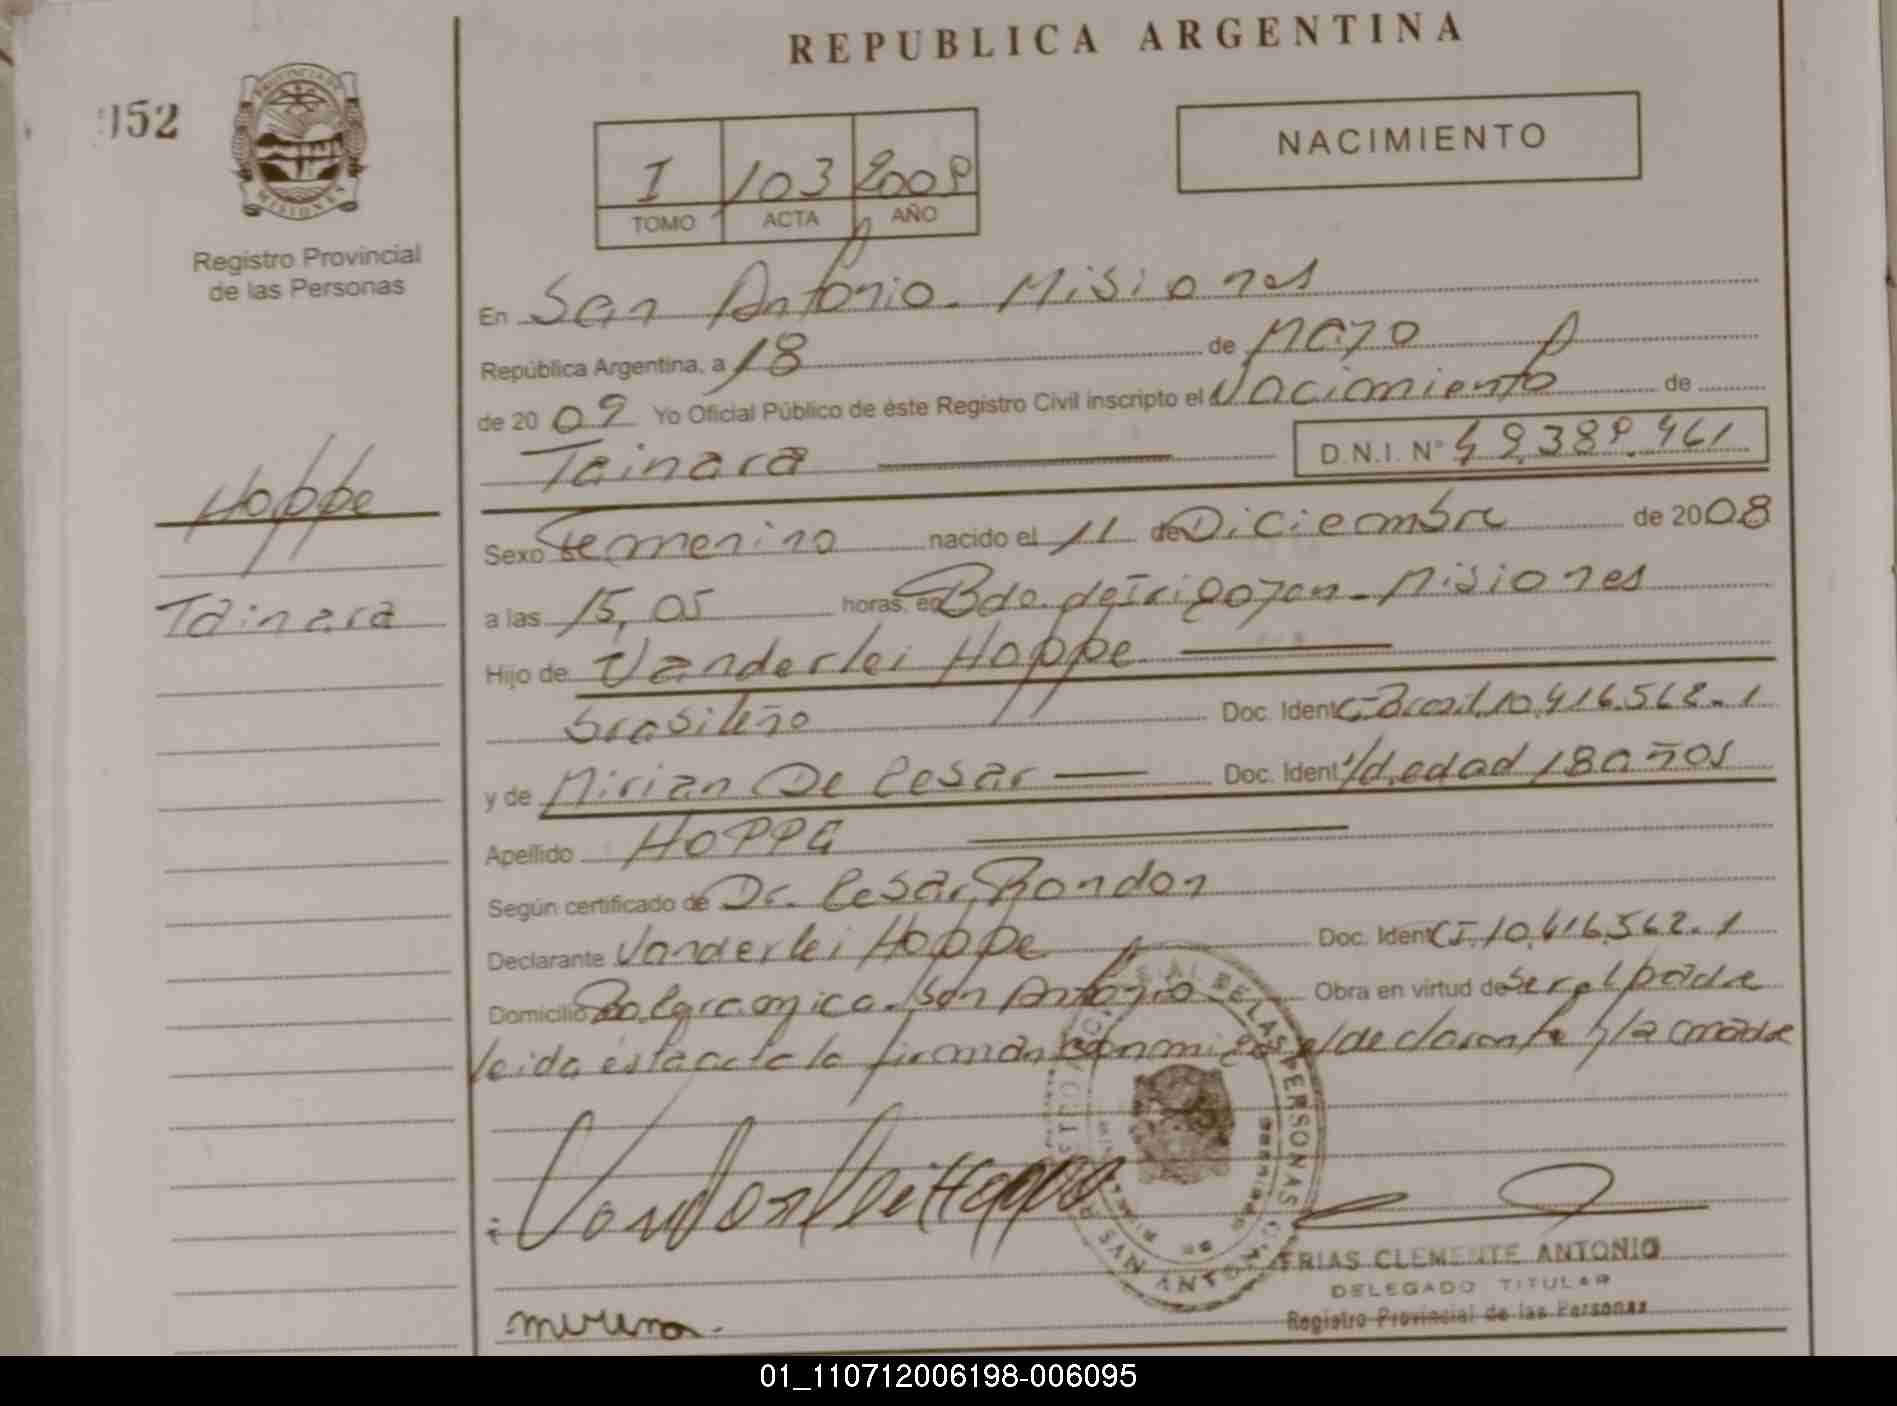 REPUBLICA ARGENTINA
152
PROVINCIA DE MISIONES
Registro Provincial
de las Personas
I 103 2009
TOMO ACTA AÑO
NACIMIENTO
En San Antonio - Misiones
República Argentina, a 18 de Mayo
de 2009 Yo Oficial Público de éste Registro Civil inscripto el Nacimiento de
Tainara D.N.I. Nº 49.389.461
Hoppe
Tainara
Sexo Femenino nacido el 11 de Diciembre de 2008
a las 15,05 horas, en Bdo. de Irigoyen - Misiones
Hijo de Vanderlei Hoppe
brasileño Doc. Ident. Brasil 10.416.562-1
y de Mirian De Cesar Doc. Ident. edad 18 años
Apellido HOPPE
Según certificado de Dr. Cesar Rondon
Declarante Vanderlei Hoppe Doc. Ident CI.10.416.562-1
Domicilio San Antonio Obra en virtud de ser el padre
leida esta acta la firman conmigo el declarante y la madre
Vanderlei Hoppe
FRIAS CLEMENTE ANTONIO
DELEGADO TITULAR
Registro Provincial de las Personas
01_110712006198-006095